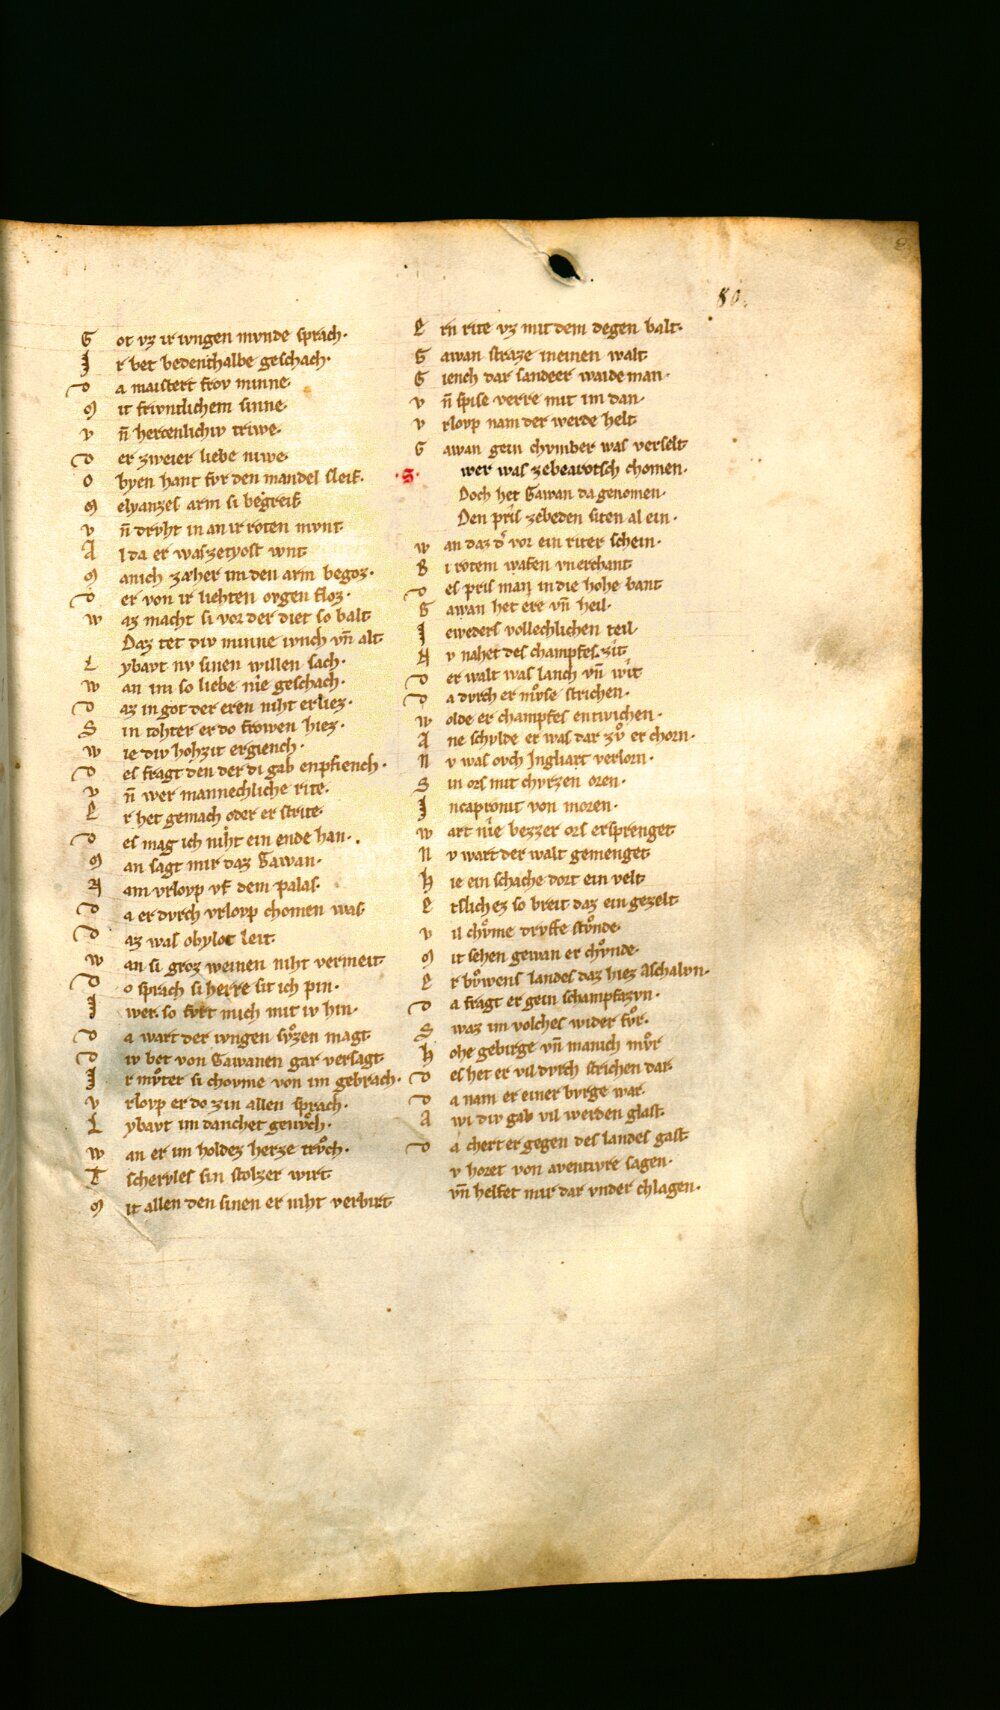 80.
G ot vz ir ivngen mvnde sprach·
J r bet bedenthalbe geschach·
D a maistert frov minne·
M it frivntlichem sinne·
V n̄ hercenlichiv triwe·
D er zweier liebe niwe·
O byen hant fvr den mandel sleif·
M elyanzes arm si begreif
V n̄ drvht in an ir roten mvnt
A l da er was zetyost wnt
M anich zæher im den arm begoz·
D er von ir liehten ovgen floz·
W az macht si vor der diet so balt
Daz tet div minne ivnch vn̄ alt
L ybavt nv sinen willen sach·
W an im so liebe nie geschach·
D az in got der eren niht erliez·
S in tohter er do frowen hiez·
W ie div hohzit ergiench·
D es fragt den der di gab enpfiench·
V n̄ wer mannechliche rite·
E r het gemach oder er strite·
D es mag ich niht ein ende han·
M an sagt mir daz Gawan·
N am vrlovp vf dem palas·
D a er dvrch vrlovp chomen was
D az was obylot leit
W an si groz weinen niht vermeit
D o sprach si herre sit ich pin·
J wer. so fvrt mich mit iv hin·
D a wart der ivngen sv̊zen magt
D iv bet von Gawanen gar versagt
J r mv̊ter si chovme von im gebrach·
V rlovp er do zin allen sprach·
L ybavt im danchet genv̊ch·
W an er im holdez herze trv̊ch·
T schervles sin stolzer wirt
M it allen den sinen er niht verbirt
E rn rite vz mit dem degen balt·
G awan straze in einen walt
G iench dar sander waideman·
V n̄ spise verre mit im dan·
V rlovp nam der werde helt
G awan gein chvmber was verselt
·S· wer was zebearotsch chomen·
Doch het Gawan da genomen·
Den pris zebeden siten al ein·
W an daz d͛ vor ein riter schein·
B i rotem wafen vnerchant
D es pris man in die hohe bant
G awan het ere vn̄ heil·
J eweders vollechlichen teil
N v nahet des champfes zit
D er walt was lanch vn̄ wit
D a dvrch er mv̊se strichen·
W olde er champfes entwichen·
A ne schvlde er was dar zv̊ er chorn·
N v was ovch Jngliart verlorn·
S in ors mit chvrzen oren·
J n capronit von moren·
W art nie bezzer ors ersprenget
N v wart der walt gemenget
H ie ein schache dort ein velt
E tslichez so breit daz ein gezelt
V il chv̊me drvffe stv̊nde·
M it sehen gewan er chv̊nde·
E r bv̊wens landes daz hiez Aschalvn·
D a fragt er gein schampfazvn·
S waz im volches wider fv̊r·
H ohe gebirge vn̄ manich mv̊r
D es het er vil dvrch strichen dar·
D a nam er einer bvrge war·
A wi div gab vil werden glast
D a chert er gegen des landes gast
v horet von aventivre sagen·
vn̄ helfet mir dar vnder chlagen·